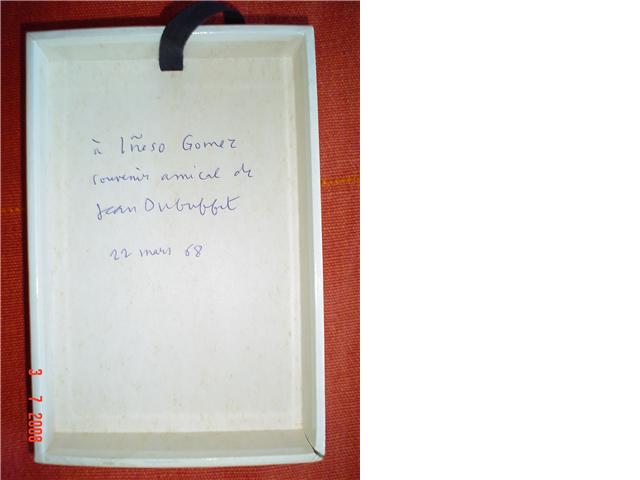 à Iñeso Gomez
souvenir amical de
Jean Dubuffet
22 mars 68
3 7 2008